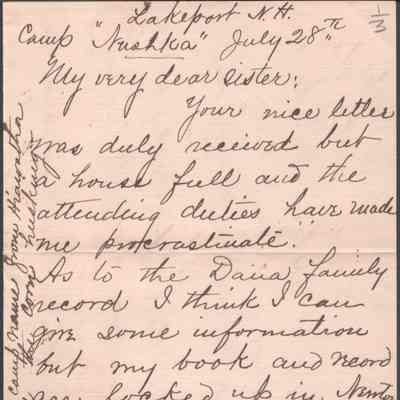 Lakeport N.H.
Camp "Nushka" July 28th
1/3
My very dear sister:
Your nice letter
was duly received but
a house full and the
attending duties "have made
me procrastinate."
As to the Dana family
record I think I can
give some information
but my book and record
are locked up in Newton
camp name from Hiawatha
the corn husking